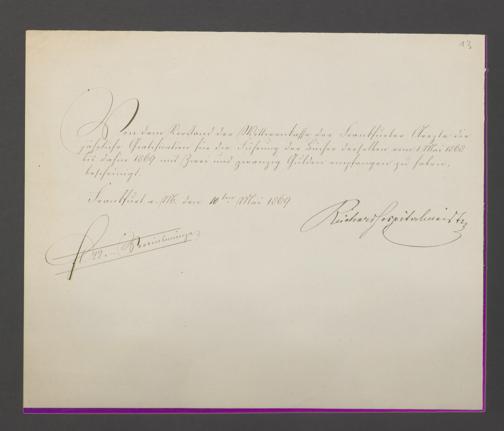 13
Von dem Vorstand der Wittwenkasse der Frankfurter Aerzte die
jährliche Gratification für die Führung der Bücher derselben vom 1 Mai 1868
bis dahin 1869 mit Zwei und zwanzig Gulden empfangen zu haben
bescheinigt.
Frankfurt a. M. den 10ten Mai 1869
Reichard Hospitalmeister
fl. 22 Vereinsmünze